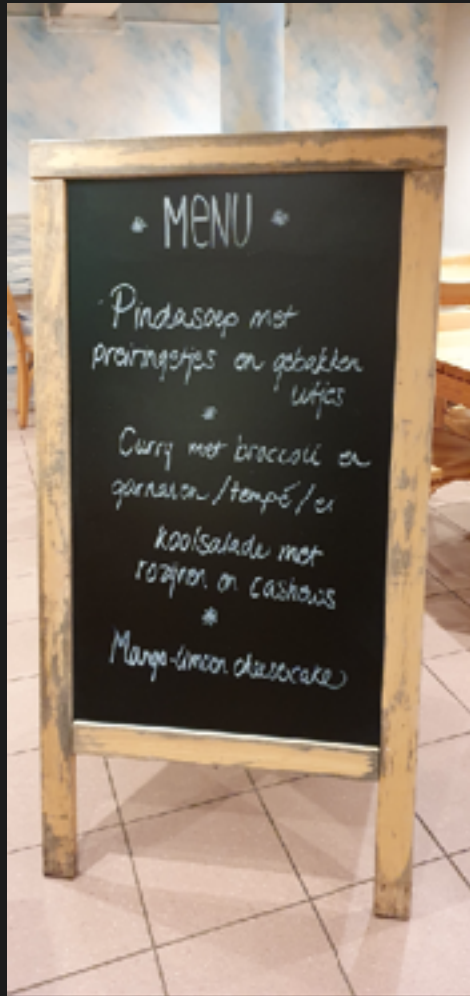 * MENU *
Pindasoep met
preiringetjes en gebakken
uitjes
*
Curry met broccoli en
garnalen / tempé / ei
Koolsalade met
rozijnen en cashews
*
Mango-limoen cheesecake